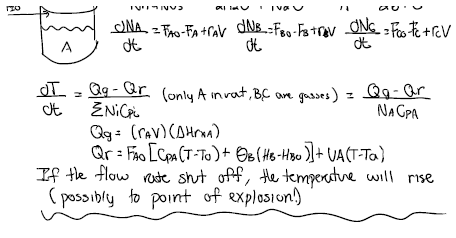 FAO
A
dNA/dt = FAO-FA+rAV dNB/dt = FBO-FB+rBV dNC/dt = FCO-FC+rCV
dT/dt = Qg - Qr / ΣNiCpi (only A in vat, B,C are gasses) = Qg - Qr / NACPA
Qg = (rAV)(ΔHrxn)
Qr = FAO[CPA(T-TO) + ΘB(HB-HBO)] + UA(T-Ta)
If the flow rate shut off, the temperature will rise
(possibly to point of explosion!)